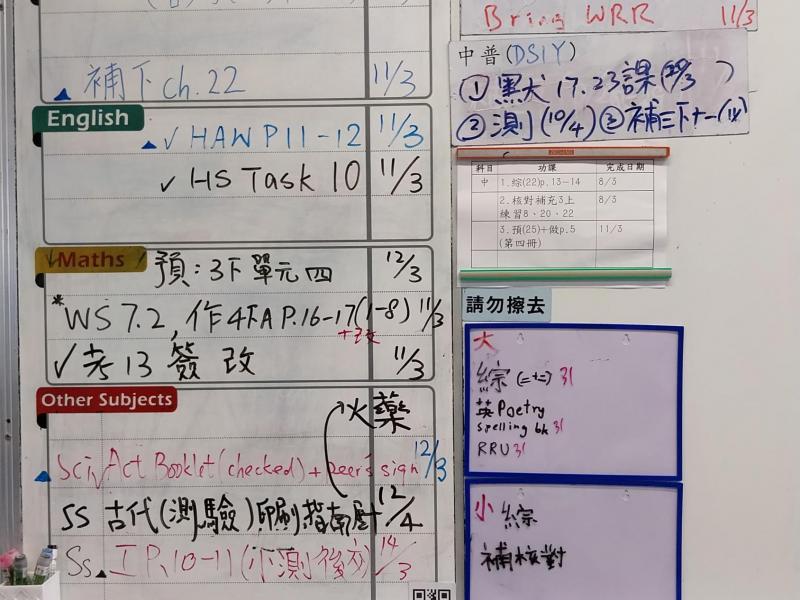 補下ch.22 11/3
English
✓ HAW P11-12 11/3
✓ HS Task 10 11/3
Maths
預:3下單元四 12/3
*WS 7.2, 作4下A P.16-17(1-8) 11/3
+改
✓考13簽改 11/3
Other Subjects
火藥
Sci Act Booklet (checked) + peer's sign 12/3
SS 古代(測驗)印刷指南針 12/4
SS IP.10-11(小測後交) 14/3
Bring WRR 11/3
中普(DSIY)
①黑犬17.23課(29/3)
②測(10/4)③補三下十一(14)
科目 功課 完成日期
中 1.綜(22)p.13-14 8/3
2.核對補充3上 8/3
練習8、20、22
3.預(25)+做p.5 11/3
(第四冊)
請勿擦去
大
綜(二十二)31
英Poetry
spelling bk 31
RRU 31
小 綜
補核對